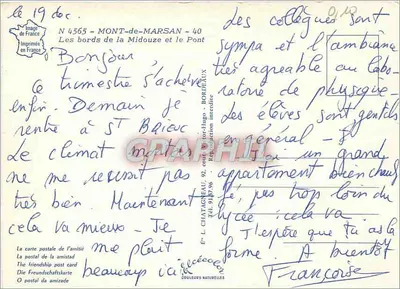 le 19 dec.
Image
de France
Imprimée
en France
N 4565 - MONT-de-MARSAN - 40
Les bords de la Midouze et le Pont
Bonjour
Ce trimestre s'achève
enfin. Demain je
rentre à ST BRIEUC
Le climat
ne me réussit pas
très bien. Maintenant
cela va mieux - Je
me plait
beaucoup ici
Les collègues sont
sympa et l'ambiance
très agréable au labo-
ratoire de physique.
Les élèves sont gentils
en général - J'
ai un grand
appartement bien chauf-
fé, pas trop loin du
lycée : cela va.
J'espère que tu as la
forme. A bientôt
Françoise
La carte postale de l'amitié
La postal de la amistad
The friendship post card
Die Freundschaftskarte
O postal da amizade
COULEURS NATURELLES